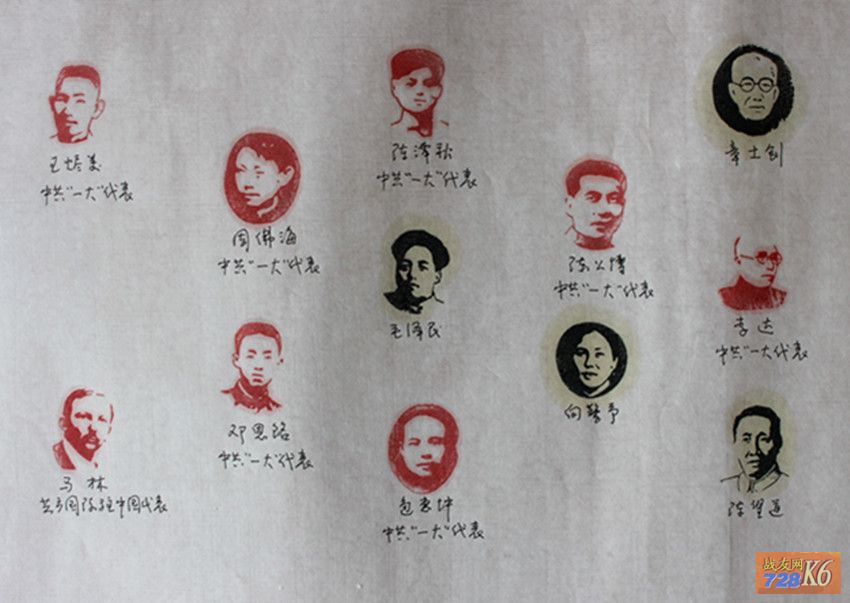 王烬美
中共"一大"代表
周佛海
中共"一大"代表
陈潭秋
中共"一大"代表
陈公博
中共"一大"代表
章士钊
毛泽民
李达
中共"一大"代表
邓恩铭
中共"一大"代表
向警予
马林
共产国际驻中国代表
包惠僧
中共"一大"代表
陈望道
战友网
728K6